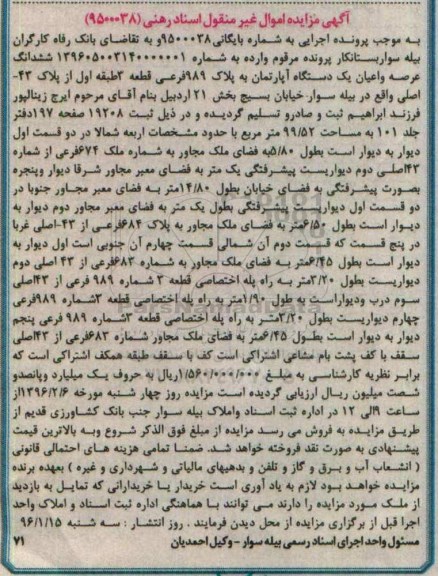 آگهی مزایده اموال غیر منقول اسناد رهنی (۹۵۰۰۰۳۸)
به موجب پرونده اجرایی به شماره بایگانی ۹۵۰۰۰۳۸و به تقاضای بانک رفاه کارگران
بیله سواربستانکار پرونده مرقوم وارده به شماره ۱۳۹۶۰۵۰۰۳۱۴۰۰۰۰۰۰۱ ششدانگ
عرصه واعیان یک دستگاه آپارتمان به پلاک ۹۸۹فرعی قطعه ۳طبقه اول از پلاک ۴۳-
اصلی واقع در بیله سوار خیابان بسیج بخش ۲۱ اردبیل بنام آقای مرحوم ایرج زینالپور
فرزند ابراهیم ثبت و صادرو تسلیم گردیده و در ذیل ثبت ۱۹۲۰۸ صفحه ۱۹۷دفتر
جلد ۱۰۱ به مساحت ۹۹/۵۲ متر مربع با حدود مشخصات اربعه شمالا در دو قسمت اول
دیوار به دیوار است بطول ۵/۸۰به فضای ملک مجاور به شماره ملک ۶۷۴فرعی از شماره
۴۳اصلی دوم دیواریست پیشرفتگی یک متر به فضای معبر مجاور شرقا دیوار وپنجره
بصورت پیشرفتگی به فضای خیابان بطول ۱۴/۸۰متر به فضای معبر مجاور جنوبا در
دو قسمت اول دیواریست پیشرفتگی بطول یک متر به فضای معبر مجاور دوم دیوار به
دیوار است بطول ۶/۵۰متر به فضای ملک مجاور به پلاک ۶۸۴فرعی از ۴۳-اصلی غربا
در پنج قسمت که قسمت دوم آن شمالی قسمت چهارم آن جنوبی است اول دیوار به
دیوار است بطول ۶/۴۵متر به فضای ملک مجاور به شماره ۶۸۳فرعی از ۴۳ اصلی دوم
دیواریست بطول ۳/۲۰متر به راه پله اختصاصی قطعه ۳ شماره ۹۸۹ فرعی از ۴۳اصلی
سوم درب ودیواراست به طول ۱/۹۰متر به راه پله اختصاصی قطعه ۳شماره ۹۸۹فرعی
چهارم دیواریست بطول ۳/۲۰متر به راه پله اختصاصی قطعه ۳شماره ۹۸۹ فرعی پنجم
دیوار به دیوار است بطول ۶/۴۵متر به فضای ملک مجاور شماره ۶۸۳فرعی از ۴۳اصلی
سقف با کف پشت بام مشاعی اشتراکی است کف با سقف طبقه همکف اشتراکی است که
برابر نظریه کارشناسی به مبلغ ۱/۵۶۰/۰۰۰/۰۰۰ریال به حروف یک میلیارد وپانصدو
شصت میلیون ریال ارزیابی گردیده است مزایده روز چهار شنبه مورخه ۱۳۹۶/۲/۶از
ساعت ۹الی ۱۲ در اداره ثبت اسناد واملاک بیله سوار جنب بانک کشاورزی قدیم از
طریق مزایده به فروش می رسد مزایده از مبلغ فوق الذکر شروع وبه بالاترین قیمت
پیشنهادی به صورت نقد فروخته خواهد شد. ضمنا تمامی هزینه های احتمالی قانونی
( انشعاب آب و برق و گاز و تلفن و بدهیهای مالیاتی و شهرداری و غیره ) بعهده برنده
مزایده خواهد بود لازم به یاد آوری است خریدار یا خریدارانی که تمایل به بازدید
از ملک مورد مزایده را دارند می توانند با هماهنگی اداره ثبت اسناد و املاک واحد
اجرا قبل از برگزاری مزایده از محل دیدن فرمایند . روز انتشار : سه شنبه ۹۶/۱/۱۵
مسئول واحد اجرای اسناد رسمی بیله سوار - وکیل احمدیان
۷۱